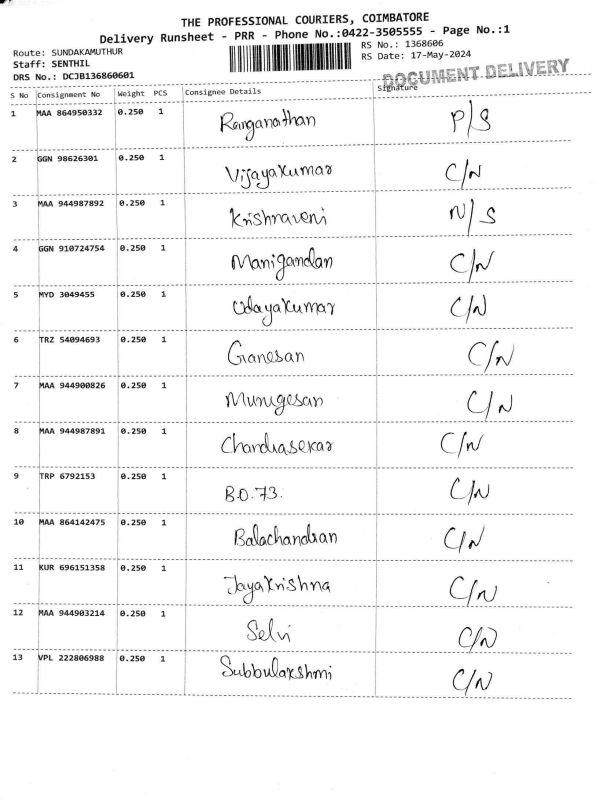 THE PROFESSIONAL COURIERS, COIMBATORE
Delivery Runsheet - PRR - Phone No.:0422-3505555 - Page No.:1
Route: SUNDAKAMUTHUR
RS No.: 1368606
Staff: SENTHIL
RS Date: 17-May-2024
DRS No.: DCJB136860601
DOCUMENT DELIVERY
S No Consignment No Weight PCS Consignee Details Signature
1 MAA 864950332 0.250 1 Ranganathan P/S
2 GGN 98626301 0.250 1 Vijayakumar C/N
3 MAA 944987892 0.250 1 Krishnaveni N/S
4 GGN 910724754 0.250 1 Manigandan C/N
5 MYD 3049455 0.250 1 Udayakumar C/N
6 TRZ 54094693 0.250 1 Ganesan C/N
7 MAA 944900826 0.250 1 Murugesan C/N
8 MAA 944987891 0.250 1 Chandrasekar C/N
9 TRP 6792153 0.250 1 B.O.73. C/N
10 MAA 864142475 0.250 1 Balachandran C/N
11 KUR 696151358 0.250 1 Jayakrishna C/N
12 MAA 944903214 0.250 1 Selvi C/N
13 VPL 222806988 0.250 1 Subbulakshmi C/N